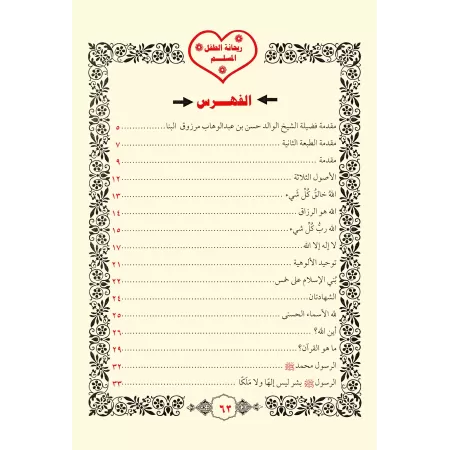 ريحانة الطفل
المسلم
الفهرس
مقدمة فضيلة الشيخ الوالد حسن بن عبدالوهاب مرزوق البنا ٥
مقدمة الطبعة الثانية ٧
مقدمة ٩
الأصول الثلاثة ١٢
اللهُ خالقُ كُلِّ شَيء ١٣
الله هو الرزاق ١٤
الله ربُّ كُلِّ شيء ١٥
لا إله إلا الله ١٧
توحيد الألوهية ٢١
بُني الإسلام على خمس ٢٢
الشهادتان ٢٤
لله الأسماء الحسنى ٢٥
أين الله؟ ٢٦
ما هو القرآن؟ ٢٩
الرسول محمد ﷺ ٣٢
الرسول ﷺ بشر ليس إلهًا ولا مَلَكًا ٣٣
٦٣